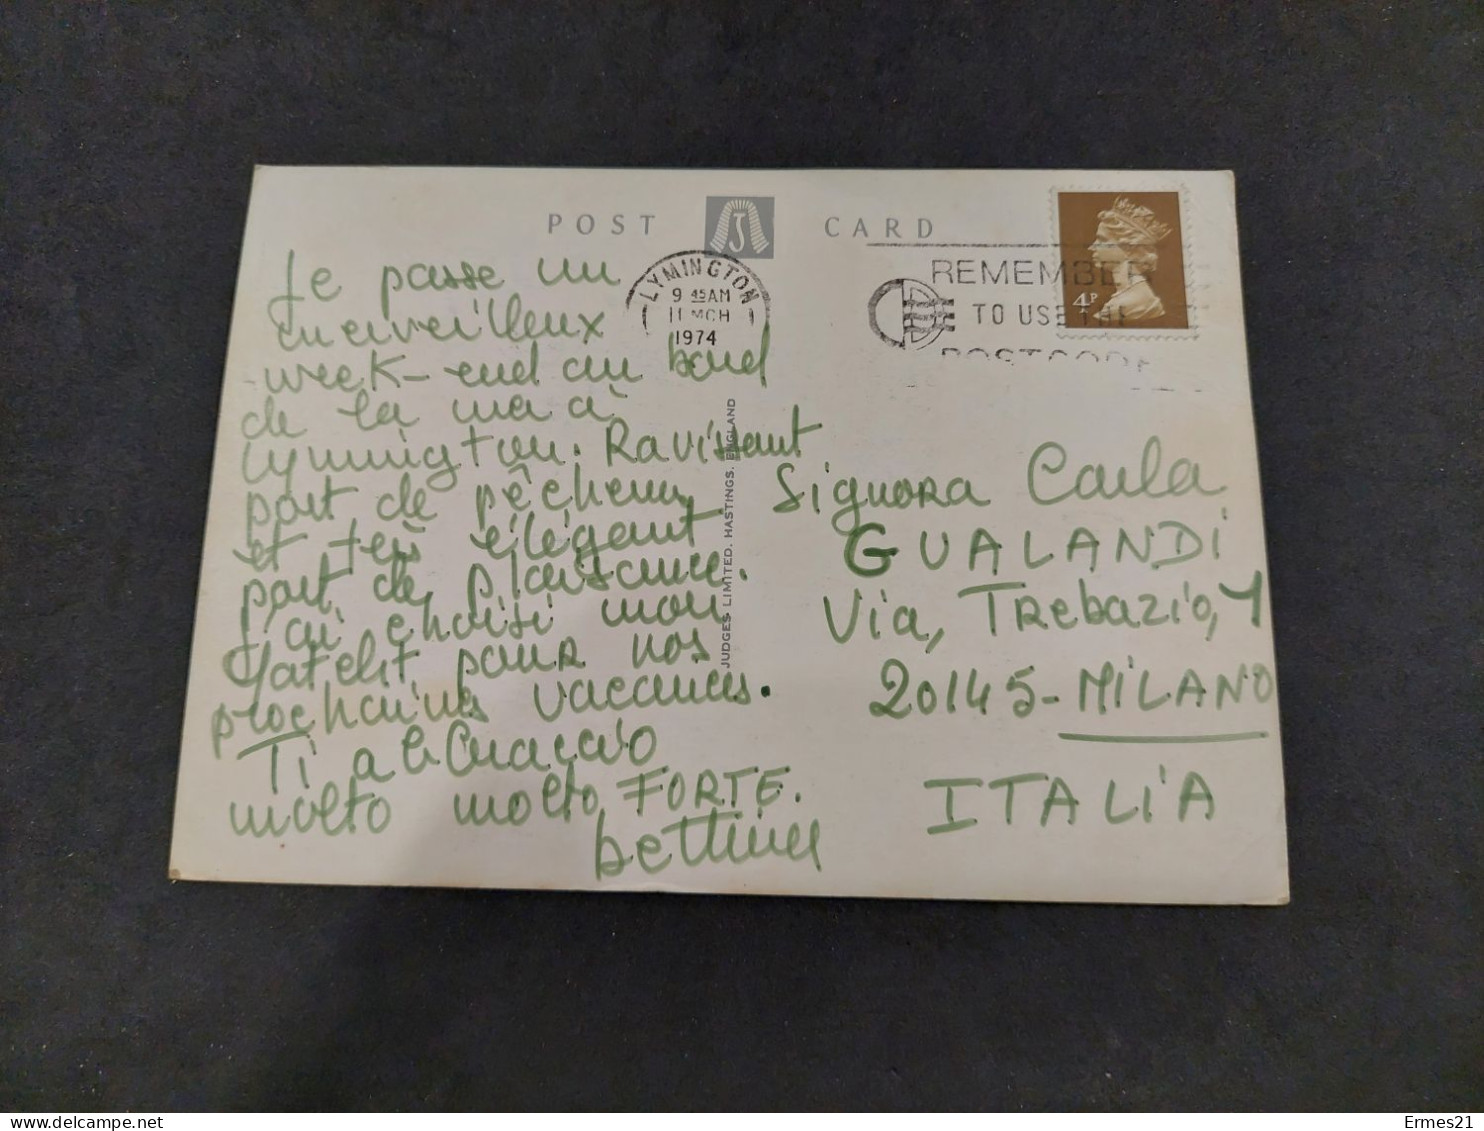 POST CARD
LYMINGTON
9 45AM
11 MCH
1974
REMEMBER
TO USE THE
POSTCODE
4P
Je passe un
merveilleux
week-end au bord
de la mer à
Lymington. Ravissant
port de pêcheur
et très élégant
port de plaisance.
J'ai choisi mon
Yatcht pour nos
prochaines vacances.
Ti abbraccio
molto molto FORTE.
bettina
JUDGES LIMITED. HASTINGS. ENGLAND
Signora Carla
GUALANDI
Via, Trebazio, 1
20145-MILANO
ITALIA
Ermes21